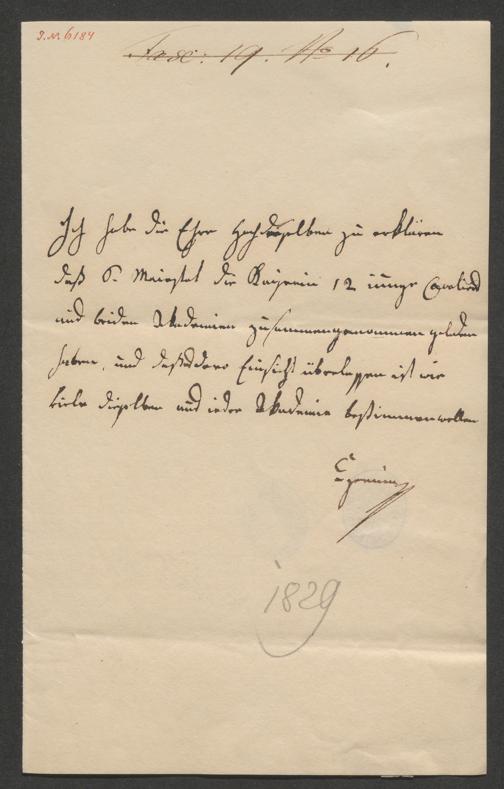 I.N. 6184
Fasc: 19. No 16.
Ich habe die Ehre Hochdieselben zu erklären
daß S. Maiestet die Kaiserin 12 iunge Cavaliers
aus beiden Akademien zusammengenommen geladen
haben, und daß dero Einsicht überlassen ist wie
viele dieselben aus ieder Akademie bestimmen wollen
1829